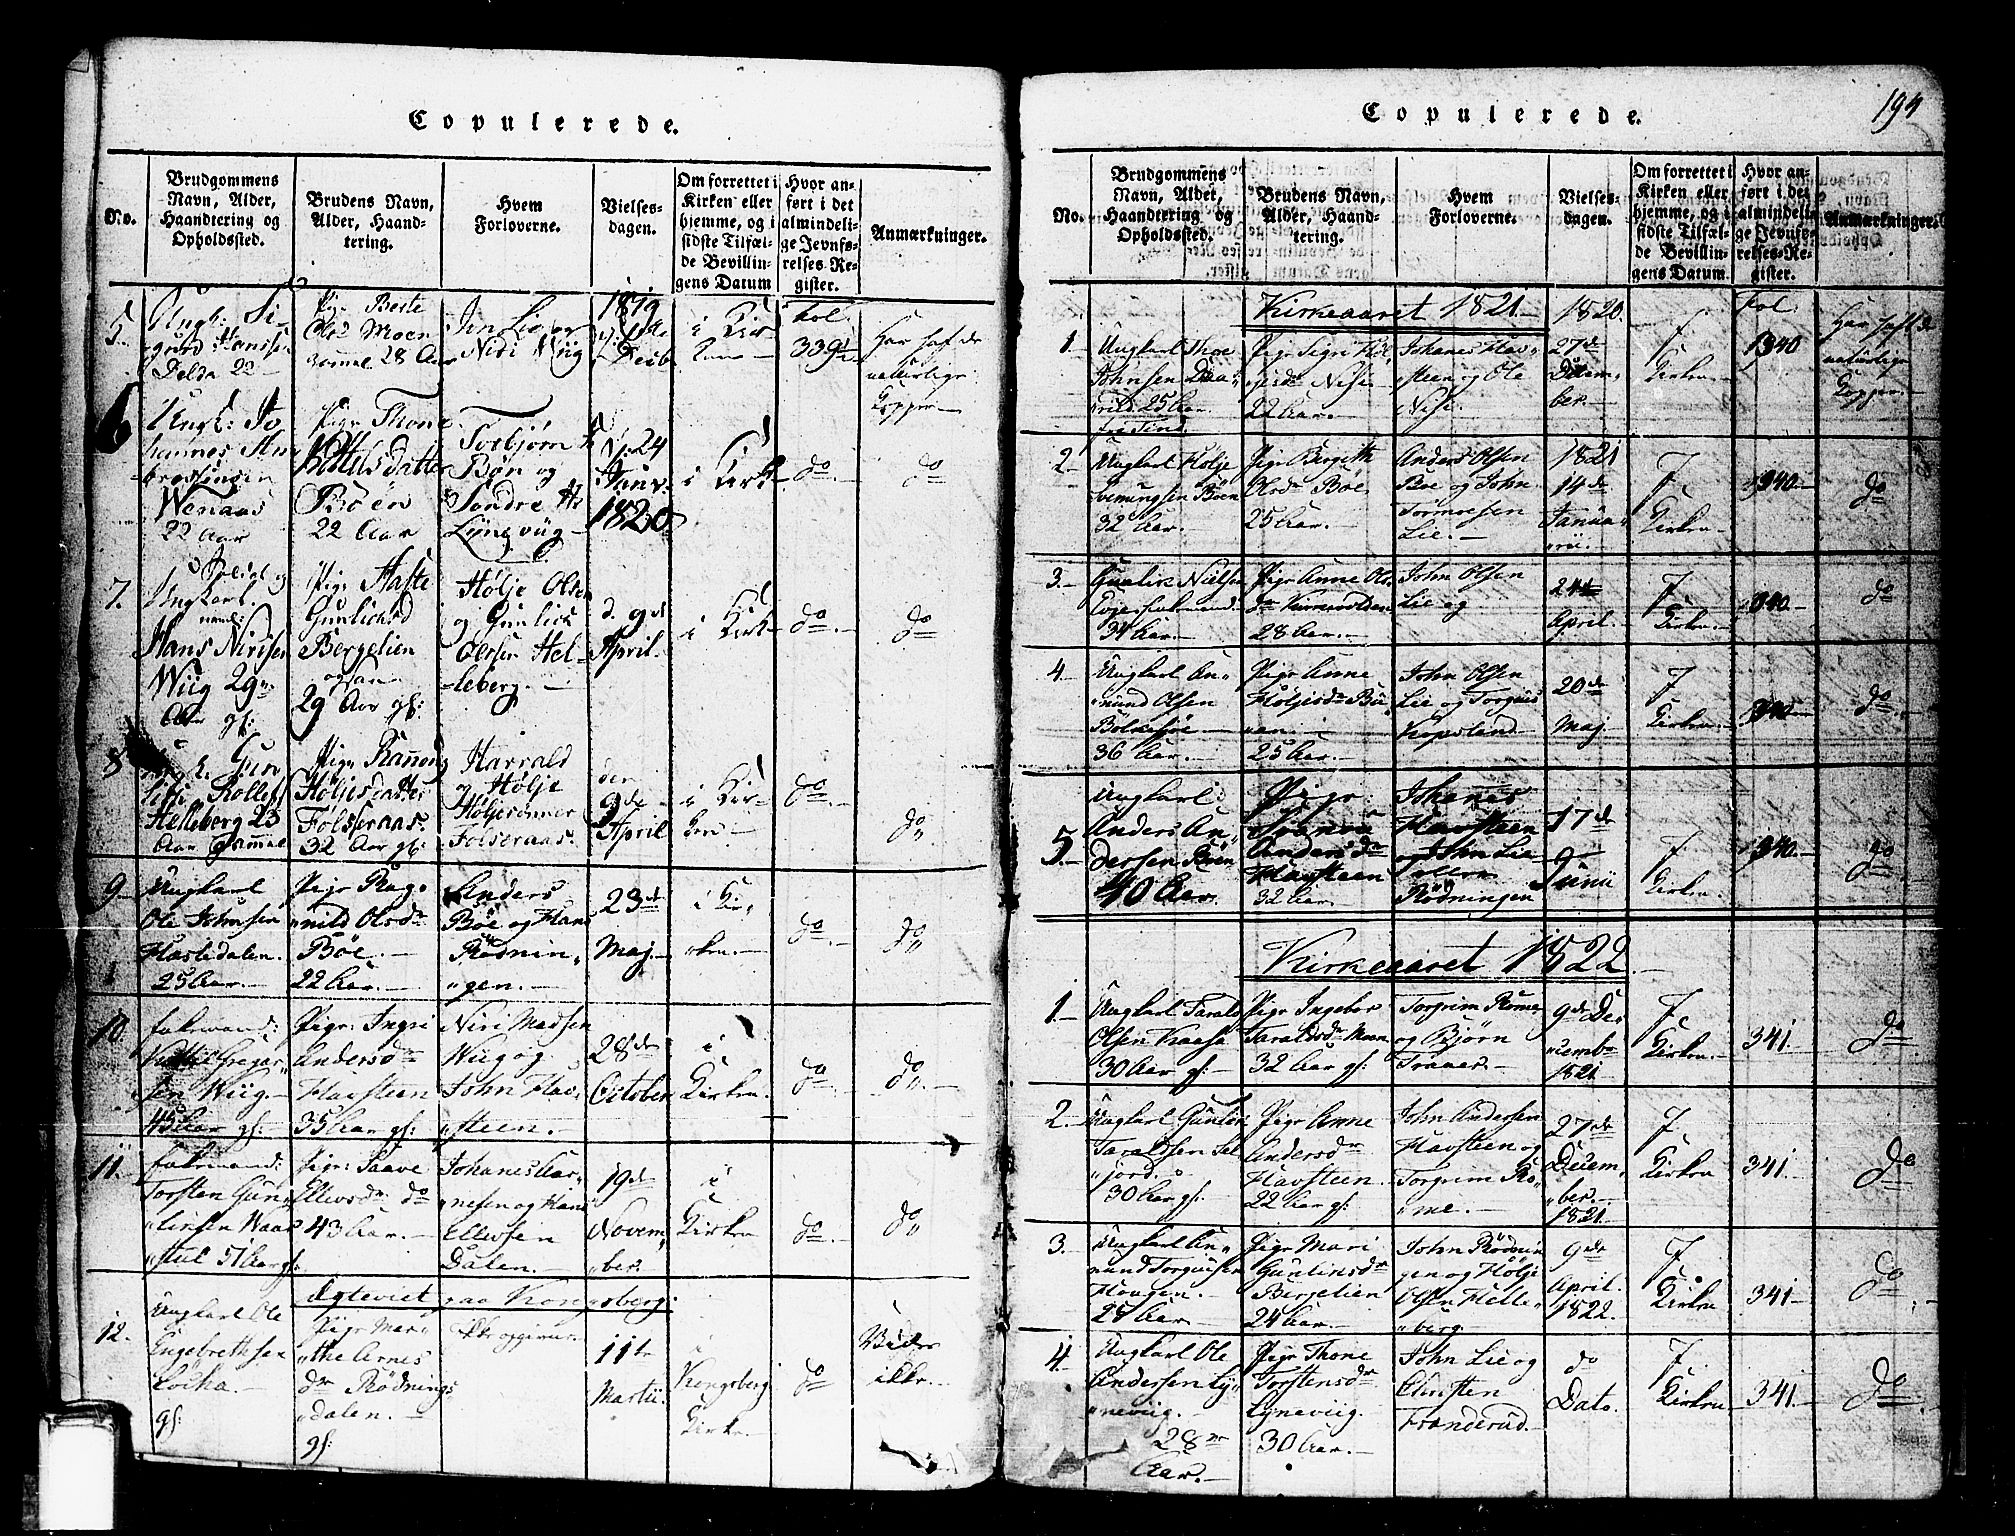 Copulerede.
No.
Brudgommens
Navn, Alder,
Haandtering og
Opholdssted.
Brudens Navn,
Alder, Haand-
tering.
Hvem
Forloverne.
Vielses-
dagen.
Om forrettet i
Kirken eller
hjemme, og i
sidste Tilfæl-
de Bevillin-
gens Datum
Hvor an-
ført i det
almindeli-
ge Jevnfø-
relses-Re-
gister.
Anmærkninger.
5.
Ungk: Si-
gurd Hanssen
22 -
Pige Berte
Olsd Moen
gammel 28 Aar
Jon Lie og
Niri Wiig
1819
Decbr
i Kir
Fol.
339
Har haft de
naturlige
Kopper -
6
Ungk: Jo
hannes Am
brossensen
Wenaas
22 Aar
Pige Thone
Kittilsdatter
Böen
22 Aar
Torbjørn
Bön og
Söndre
Lynevüg
d. 24
Janr.
1820
i Kirk
do
do
7.
Ungkarl
Hans Nirisen
Wiig 29
Aar gl:
Pige Haste
Gunlichsd
Bergelien
29 Aar gl:
Høljе Olsen
og Gunlich
Olsen Hel-
leberg. -
d. 9de
April.
i Kirk
do
do
8
Gun
Rollefs
Helleberg 23
Aar Gammel
Pige
Høljesdatter
Følseraas.
32 Aar gl:
Harrald
og Hølje
Høljesønner
Følseraas.
den
9de
April
i Kir-
ken
do
do
9
Ungkarl
Ole Johnsen
Hasledalen.
25 Aar. -
Pige Rag-
nild Olsdr
Böe. -
22 Aar. -
Anders
Böe og Hans
Rödnin„
„gen. -
23de
Maj. -
i Kir„
„ken. -
do
do
10.
Enkemand:
Kittil Gregar„
sen Wiig. -
Pige: Ingri
Andersdr
Havsteen
35 Aar gl:
Niri Madsen
Wiig og
John Hav„
„steen. -
28de
October
i
Kirken
do
do
11.
Enkemand:
Torsten Gun
51 Aar gl:
Pige: Saave
Ellevsdr
43 Aar. -
Johanes Aar„
„nesen og Hans
Ellevsen
Dalen. -
19de
Novem„
„ber.
i
Kirken
do
do
Ægteviet paa Kongsberg:
12.
Ungkarl Ole
Engebrethsen
gl:
Pige Mar„
„the Arnes
dr Rödnings
„dalen. -
gl:
Ikke opgivne.
11te
Martii.
i
Kongsberg
Kirke. -
do
Vides
ikke. -
Copulerede.
194
No.
Brudgommens
Navn, Alder,
Haandtering og
Opholdssted.
Brudens Navn,
Alder, Haand-
tering.
Hvem
Forloverne.
Vielses-
dagen.
Om forrettet i
Kirken eller
hjemme, og i
sidste Tilfæl-
de Bevillin-
gens Datum
Hvor an-
ført i det
almindeli-
ge Jevnfø-
relses-Re-
gister.
Anmærkninger.
Kirkeaaret 1821
1.
Ungkarl
Johnsen
25 Aar.
fra Tind.
Pige Signe
22 Aar. -
Johanes Hav„
„steen og Ole
1820.
27de
Decem„
ber. -
I
Kirken. -
Fol.
340
Har haft de
naturlige
Kopper. -
2.
Ungkarl Hølje
Böen
32 Aar. -
Pige Bergith
Olsdr Böe
25 Aar. -
Anders Olsen
Böe og John
Lie. -
1821
14de
Janua„
„rii. -
I
Kirken
340 -
do
3.
Gunlix Nielsen
Enkemand.
34 Aar. -
Pige Anne Ols
28 Aar. -
John Olsen
Lie og
24de
April.
I
Kirken. -
340 -
do
4.
Ungkarl An„
„nund Olsen
Bolkesjøe
36 Aar. -
Pige Anne
Høljesdr
25 Aar. -
John Olsen
Lie og Torgius
Kopsland
20de
Maj.
I
Kirken. -
340
do
5.
Ungkarl:
Anders An„
dersen Böen
40 Aar.
Pige
Andersdr
Havsteen
32 Aar.
Johanes
Havsteen
og John Lie
Rödningen
17de
Junii
I
Kirken
340 -
do
Kirkeaaret 1822.
1.
Ungkarl Tarald
Olsen Kaasa
30 Aar gl:
Pige Ingebor
Taraldsdr Moen
32 Aar gl:
Torgrim Röme
og Björn
Traaen. -
9de De„
„cembr
1821
I
Kirken. -
341. -
do
2.
Ungkarl Gunlix
Taraldsen Sel
„jord.
30 Aar gl.
Pige Anne
Andersdr
Havsteen
22 Aar gl:
John Andersen
Havsteen og
Torgrim Rö„
„me. -
27de
Decem„
„ber. -
1821
I
Kirken
341. -
do
3.
Ungkarl An„
„nund Torgiusen
Haugen. -
28 Aar. -
Pige Mari
Gunlixsdr
Bergelien
24 Aar. -
John Rödnin
gen og Hølje
Olsen Helle„
„berg. -
9de
April.
1822.
I
Kirken
341 -
do
4.
Ungkarl Ole
Andersen Ly„
„neviig. -
28
Aar. -
Pige Thone
Torstensdr
Lyneviig.
30 Aar. -
John Lie og
Christen
Frønderud.
do
Dato.
I.
Kirken
341. -
do